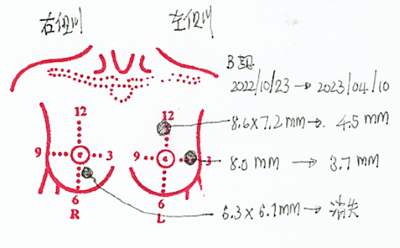 右側 左側
B超
2022/10/23 → 2023/04/10
12 12
8.6x7.2 mm → 4.5 mm
9 3 9 3
8.0 mm → 3.7 mm
6 6
R L
6.3 x 6.1mm → 消失